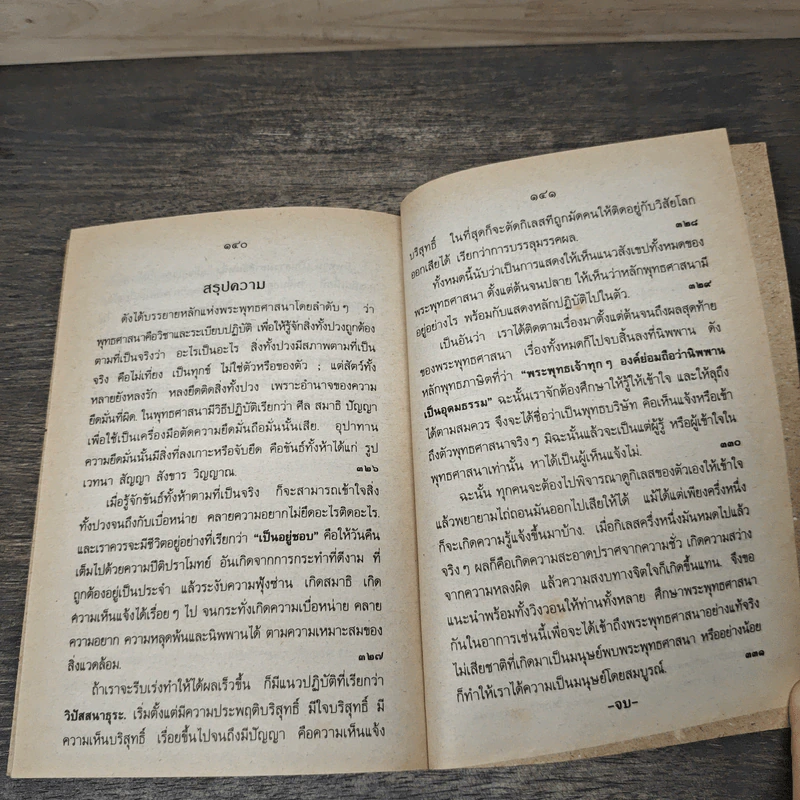 ๑๔๐
สรุปความ
ดังได้บรรยายหลักแห่งพระพุทธศาสนาโดยลำดับๆ ว่า
พุทธศาสนาคือวิชาและระเบียบปฏิบัติ เพื่อให้รู้จักสิ่งทั้งปวงถูกต้อง
ตามที่เป็นจริงว่า อะไรเป็นอะไร สิ่งทั้งปวงมีสภาพตามที่เป็น
จริง คือไม่เที่ยง เป็นทุกข์ ไม่ใช่ตัวหรือของตัว ; แต่สัตว์ทั้ง
หลายยังหลงรัก หลงยึดติดสิ่งทั้งปวง เพราะอำนาจของความ
ยึดมั่นที่ผิด. ในพุทธศาสนามีวิธีปฏิบัติเรียกว่า ศีล สมาธิ ปัญญา
เพื่อใช้เป็นเครื่องมือตัดความยึดมั่นถือมั่นนั้นเสีย. อุปาทาน
ความยึดมั่นนั้นมีสิ่งที่ลงเกาะหรือจับยึด คือขันธ์ทั้งห้าได้แก่ รูป
เวทนา สัญญา สังขาร วิญญาณ. ๓๒๖
เมื่อรู้จักขันธ์ทั้งห้าตามที่เป็นจริง ก็จะสามารถเข้าใจสิ่ง
ทั้งปวงจนถึงกับเบื่อหน่าย คลายความอยากไม่ยึดอะไรติดอะไร.
และเราควรจะมีชีวิตอยู่อย่างที่เรียกว่า “เป็นอยู่ชอบ” คือให้วันคืน
เต็มไปด้วยความปีติปราโมทย์ อันเกิดจากการกระทำที่ดีงาม ที่
ถูกต้องอยู่เป็นประจำ แล้วระงับความฟุ้งซ่าน เกิดสมาธิ เกิด
ความเห็นแจ้งได้เรื่อยๆ ไป จนกระทั่งเกิดความเบื่อหน่าย คลาย
ความอยาก ความหลุดพ้นและนิพพานได้ ตามความเหมาะสมของ
สิ่งแวดล้อม. ๓๒๗
ถ้าเราจะรีบเร่งทำให้ได้ผลเร็วขึ้น ก็มีแนวปฏิบัติที่เรียกว่า
วิปัสสนาธุระ. เริ่มตั้งแต่มีความประพฤติบริสุทธิ์ มีใจบริสุทธิ์ มี
ความเห็นบริสุทธิ์ เรื่อยขึ้นไปจนถึงมีปัญญา คือความเห็นแจ้ง
๑๔๑
บริสุทธิ์ ในที่สุดก็จะตัดกิเลสที่ถูกมัดคนให้ติดอยู่กับวิสัยโลก
ออกเสียได้ เรียกว่าการบรรลุมรรคผล. ๓๒๘
ทั้งหมดนี้นับว่าเป็นการแสดงให้เห็นแนวสังเขปทั้งหมดของ
พระพุทธศาสนา ตั้งแต่ต้นจนปลาย ให้เห็นว่าหลักพุทธศาสนามี
อยู่อย่างไร พร้อมกับแสดงหลักปฏิบัติไปในตัว. ๓๒๙
เป็นอันว่า เราได้ติดตามเรื่องมาตั้งแต่ต้นจนถึงผลสุดท้าย
ของพระพุทธศาสนา เรื่องทั้งหมดก็ไปจบสิ้นลงที่นิพพาน ดัง
หลักพุทธภาษิตที่ว่า “พระพุทธเจ้าทุกๆ องค์ย่อมถือว่านิพพาน
เป็นอุดมธรรม” ฉะนั้นเราจักต้องศึกษาให้รู้ให้เข้าใจ และให้ลุถึง
ได้ตามสมควร จึงจะได้ชื่อว่าเป็นพุทธบริษัท คือเห็นแจ้งหรือเข้า
ถึงตัวพุทธศาสนาจริงๆ มิฉะนั้นแล้วจะเป็นแต่ผู้รู้ หรือผู้เข้าใจใน
พุทธศาสนาเท่านั้น หาได้เป็นผู้เห็นแจ้งไม่. ๓๓๐
ฉะนั้น ทุกคนจะต้องไปพิจารณาดูกิเลสของตัวเองให้เข้าใจ
แล้วพยายามไถ่ถอนมันออกไปเสียให้ได้ แม้ได้แต่เพียงครึ่งหนึ่ง
ก็จะเกิดความรู้แจ้งขึ้นมาบ้าง. เมื่อกิเลสครึ่งหนึ่งมันหมดไปแล้ว
จริงๆ ผลก็คือเกิดความสะอาดปราศจากความชั่ว เกิดความสว่าง
จากความหลงผิด แล้วความสงบทางจิตใจก็เกิดขึ้นแทน. จึงขอ
แนะนำพร้อมทั้งวิงวอนให้ท่านทั้งหลาย ศึกษาพระพุทธศาสนา
กันในอาการเช่นนี้เพื่อจะได้เข้าถึงพระพุทธศาสนาอย่างแท้จริง
ไม่เสียชาติที่เกิดมาเป็นมนุษย์พบพระพุทธศาสนา หรืออย่างน้อย
ก็ทำให้เราได้ความเป็นมนุษย์โดยสมบูรณ์. ๓๓๑
-จบ-